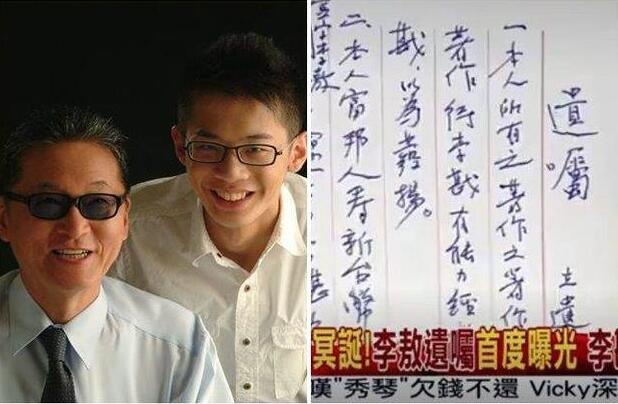 遺囑 立遺
一本人所有之著作之著作
著作衍李戡有能力經
戡,以為發揚。
二、本人富邦人壽新台幣
冥誕!李敖遺囑首度曝光 李
嘆"秀琴"欠錢不還 Vicky深